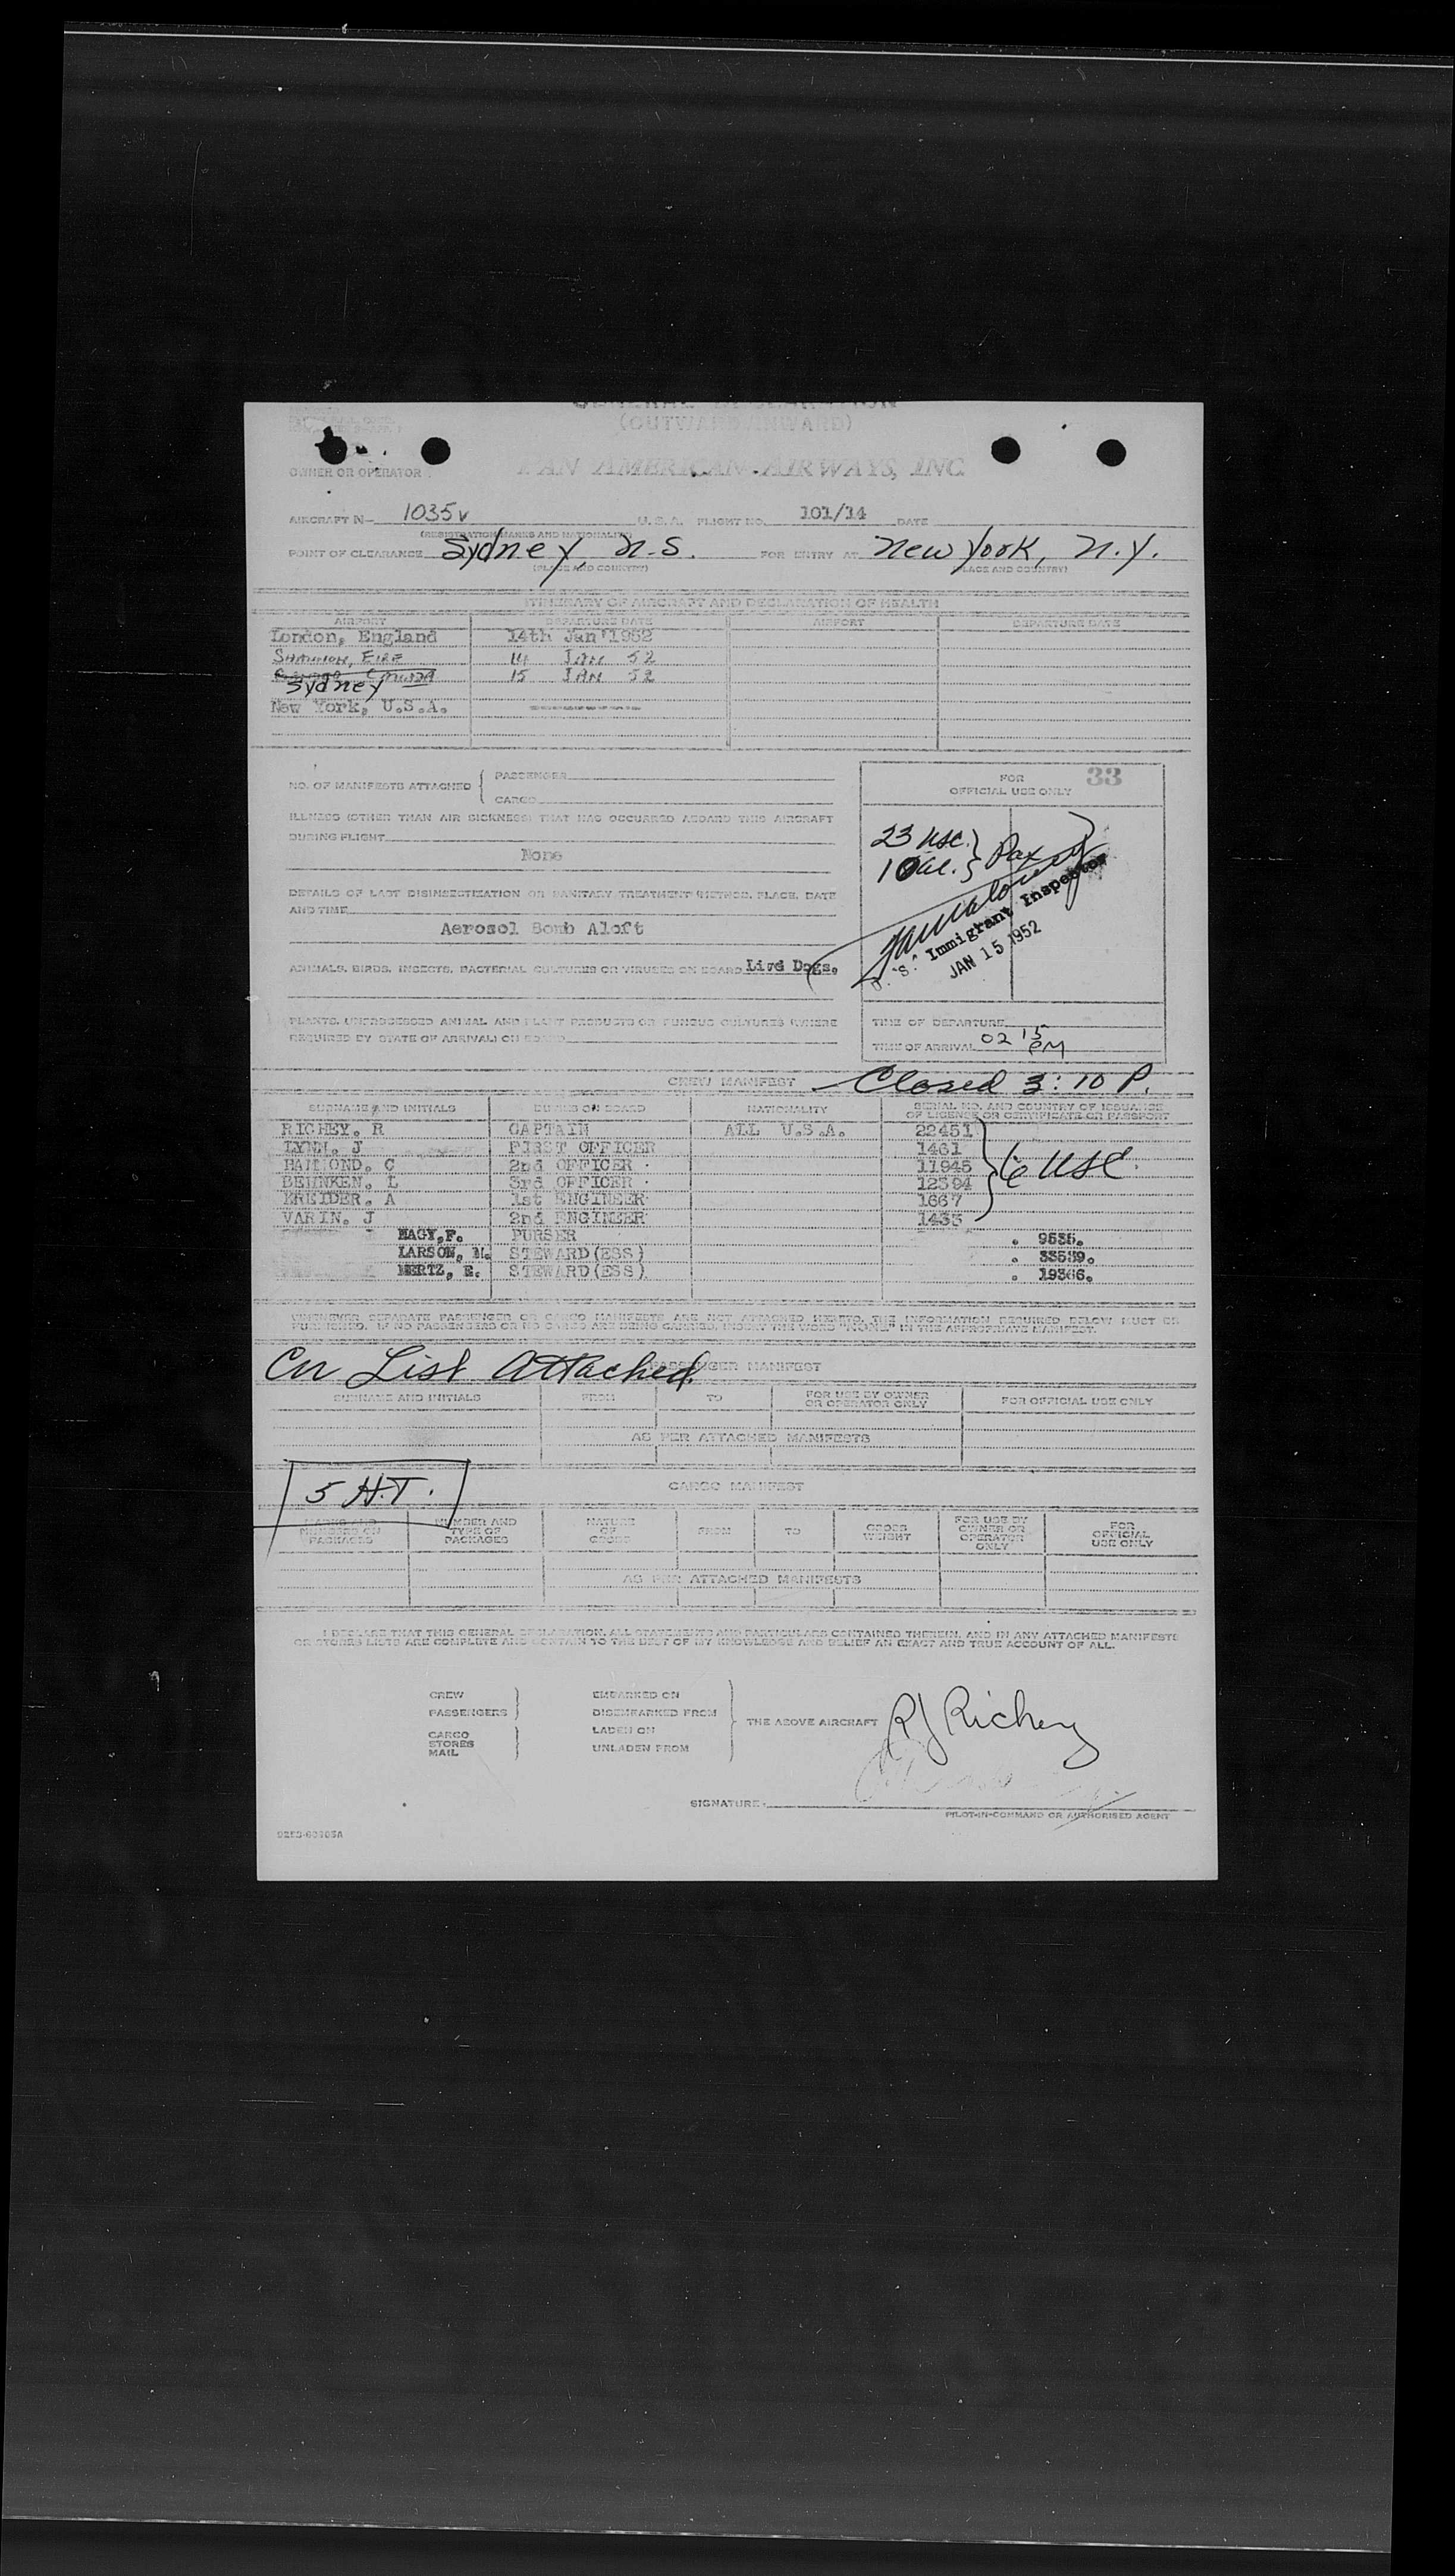 GENERAL DECLARATION
(OUTWARD/INWARD)
OWNER OR OPERATOR PAN AMERICAN AIRWAYS, INC.
AIRCRAFT N— 1035V U.S.A. FLIGHT NO. 101/14 DATE
(REGISTRATION MARKS AND NATIONALITY)
POINT OF CLEARANCE Sydney, N.S. FOR ENTRY AT New York, N.Y.
(PLACE AND COUNTRY) (PLACE AND COUNTRY)
ITINERARY OF AIRCRAFT AND DECLARATION OF HEALTH
AIRPORT DEPARTURE DATE AIRPORT DEPARTURE DATE
London, England 14th Jan 1952
SHANNON, EIRE 14 JAN 52
CANADA 15 JAN 52
Sydney
New York, U.S.A. ----------
NO. OF MANIFESTS ATTACHED { PASSENGER
CARGO
FOR 33
OFFICIAL USE ONLY
ILLNESS (OTHER THAN AIR SICKNESS) THAT HAS OCCURRED ABOARD THIS AIRCRAFT
DURING FLIGHT
None
23 USC. } Pax
10 al.
U. S. Immigrant Inspector
JAN 15 1952
DETAILS OF LAST DISINSECTIZATION OR SANITARY TREATMENT (METHOD, PLACE, DATE
AND TIME
Aerosol Bomb Aloft
ANIMALS, BIRDS, INSECTS, BACTERIAL CULTURES OR VIRUSES ON BOARD Live Dogs.
PLANTS, UNPROCESSED ANIMAL AND PLANT PRODUCTS OR FUNGUS CULTURES (WHERE
REQUIRED BY STATE OF ARRIVAL) ON BOARD
TIME OF DEPARTURE
TIME OF ARRIVAL 02 15 PM
CREW MANIFEST — Closed 3:10 P.
SURNAME AND INITIALS DUTIES ON BOARD NATIONALITY SERIAL NO. AND COUNTRY OF ISSUANCE
OF LICENSE OR CERTIFICATE OR PASSPORT
RICHEY. R CAPTAIN ALL U.S.A. 22451
LYNN. J FIRST OFFICER 1461
HAMMOND. C 2nd OFFICER 11945
BEHNKEN. L 3rd OFFICER 12394
KREIDER. A 1st ENGINEER 1667
VARIN. J 2nd ENGINEER 1435
6 USC.
NAGY,F. PURSER 9535.
LARSON, M. STEWARD(ESS) 33589.
MERTZ, E. STEWARD(ESS) 19366.
WHENEVER SEPARATE PASSENGER OR CARGO MANIFESTS ARE NOT ATTACHED HERETO, THE INFORMATION REQUIRED BELOW MUST BE
FURNISHED. IF NO PASSENGERS OR NO CARGO ARE BEING CARRIED, INDICATE WORD "NONE" IN THE APPROPRIATE MANIFEST.
List Attached PASSENGER MANIFEST
SURNAME AND INITIALS FROM TO FOR USE BY OWNER
OR OPERATOR ONLY FOR OFFICIAL USE ONLY
AS PER ATTACHED MANIFESTS
5 H.T.
CARGO MANIFEST
MARKS AND
NUMBERS ON
PACKAGES NUMBER AND
TYPE OF
PACKAGES NATURE
OF
GOODS FROM TO GROSS
WEIGHT FOR USE BY
OWNER OR
OPERATOR
ONLY FOR
OFFICIAL
USE ONLY
AS PER ATTACHED MANIFESTS
I DECLARE THAT THIS GENERAL DECLARATION, ALL STATEMENTS AND PARTICULARS CONTAINED THEREIN, AND IN ANY ATTACHED MANIFESTS
OR STORES LISTS ARE COMPLETE AND CONTAIN TO THE BEST OF MY KNOWLEDGE AND BELIEF AN EXACT AND TRUE ACCOUNT OF ALL.
CREW EMBARKED ON
PASSENGERS DISEMBARKED FROM
THE ABOVE AIRCRAFT RJ Richey
CARGO LADEN ON
STORES
MAIL UNLADEN FROM
SIGNATURE
PILOT-IN-COMMAND OR AUTHORISED AGENT